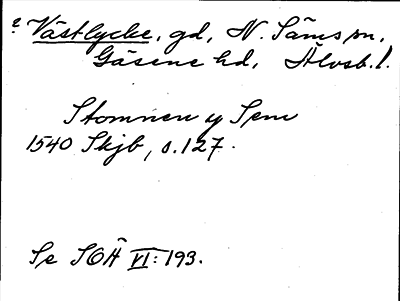 e Västlycke, gd, N. Säms sn,
Gäsene hd, Älvsb. l.
Stommen y Sem
1540 Skjb, s. 127.
Se SOÄ VI: 193.